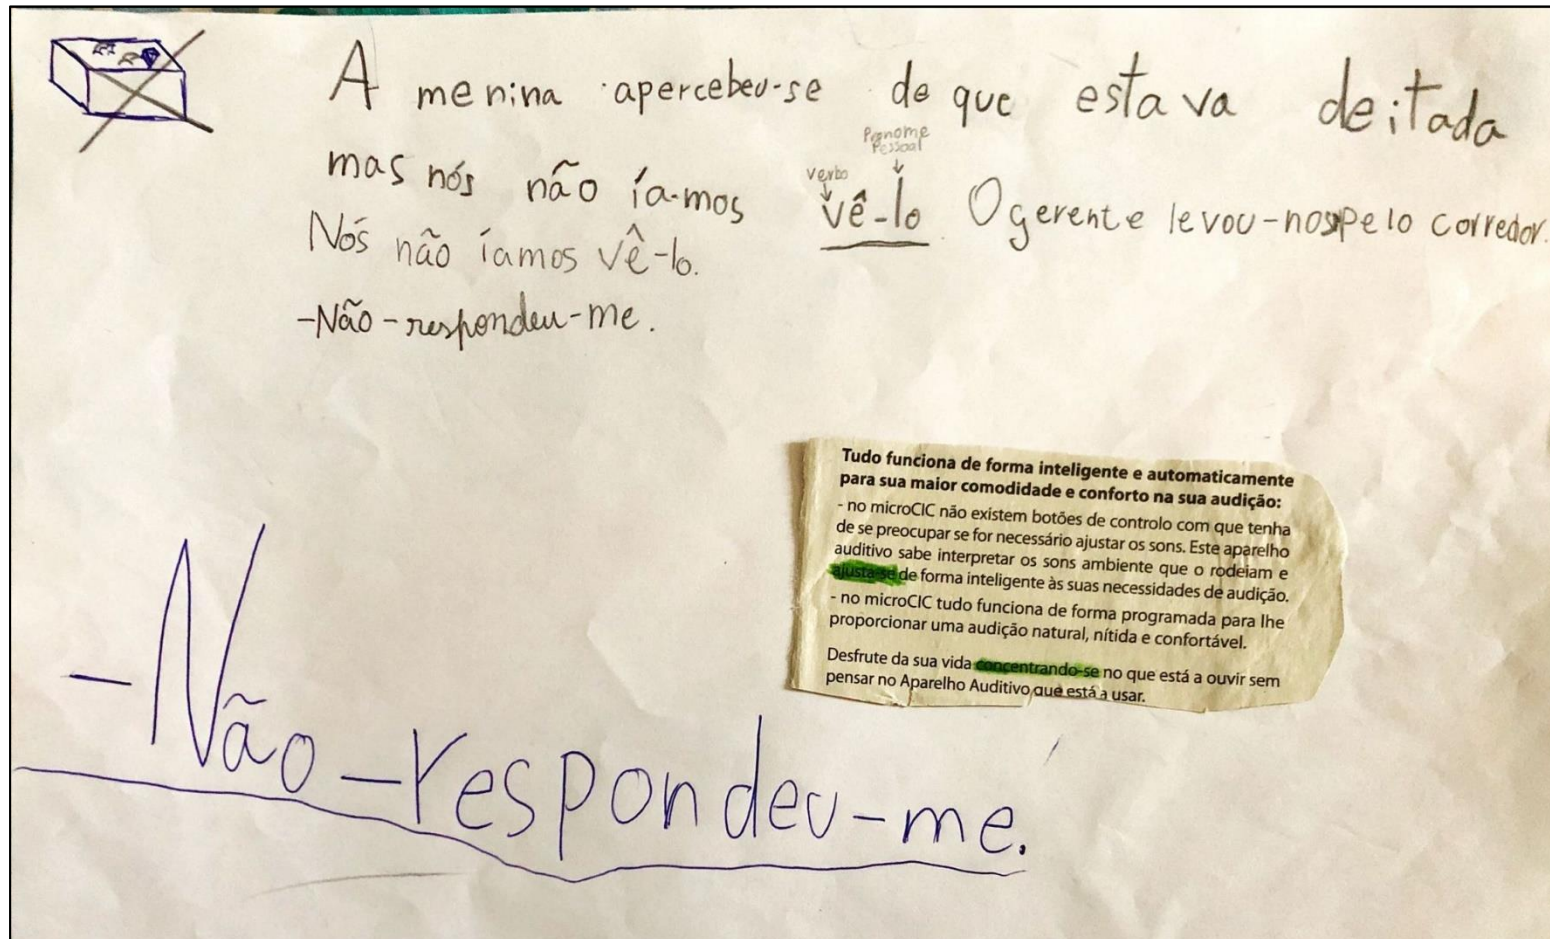 A menina apercebeu-se de que estava deitada
Pronome
Pessoal
verbo
mas nós não ía-mos vê-lo. O gerente levou-nos pelo corredor.
Nós não íamos vê-lo.
-Não-respondeu-me.
Tudo funciona de forma inteligente e automaticamente
para sua maior comodidade e conforto na sua audição:
- no microCIC não existem botões de controlo com que tenha
de se preocupar se for necessário ajustar os sons. Este aparelho
auditivo sabe interpretar os sons ambiente que o rodeiam e
ajusta-se de forma inteligente às suas necessidades de audição.
- no microCIC tudo funciona de forma programada para lhe
proporcionar uma audição natural, nítida e confortável.
Desfrute da sua vida concentrando-se no que está a ouvir sem
pensar no Aparelho Auditivo que está a usar.
-Não-respondeu-me.